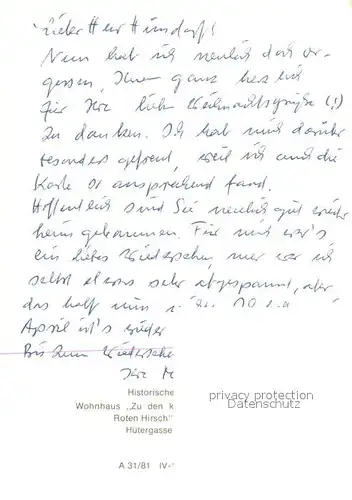 Lieber Herr Hunsdorf!
Nun hab ich neulich doch ver-
gessen, Ihnen ganz herzlich
für Ihre lieben Weihnachtsgrüße (!)
zu danken. Ich hab mich darüber
besonders gefreut, weil ich auch die
Karte so ansprechend fand.
Hoffentlich sind Sie neulich gut wieder
heim gekommen. Für mich war's
ein liebes Wiedersehen, nur war ich
selbst etwas sehr abgespannt, aber
das half nun
April ist's wieder
Bis zum Wiedersehe
Ihre
Historische
Wohnhaus „Zu den k
Roten Hirsch"
Hütergasse
A 31/81 IV-
privacy protection
Datenschutz